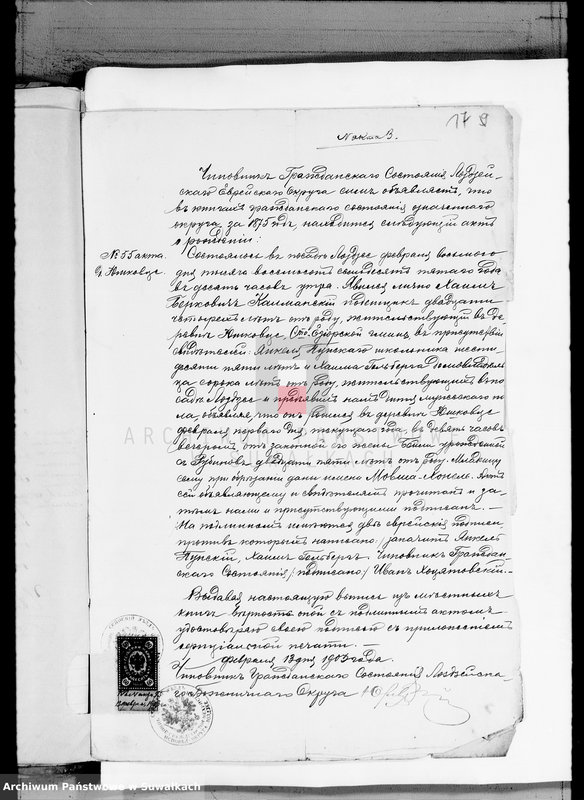 № акта 3.
179
Чиновникъ Гражданскаго Состоянія Лодзей-
скаго Еврейскаго Округа симъ объявляетъ, что
въ книгахъ гражданскаго состоянія означеннаго
округа за 1875 годъ, находится слѣдующій актъ
о рожденіи:
№ 55 акта.
Состоялось въ посадѣ Лодзее февраля восьмого
дня тысяча восемьсотъ семьдесятъ пятаго года
въ десять часовъ утра. Явился лично Хаимъ
Берковичъ Калманскій двадцати
четырехъ лѣтъ отъ роду, жительствующій въ де-
ревнѣ гмины въ присутствіи
свидѣтелей: Янкеля Пунскаго школьника шести-
десяти пяти лѣтъ и Хаима Гольберга
сорока лѣтъ отъ роду, жительствующихъ въ по-
садѣ Лодзее и предъявилъ намъ дитя мужескаго по-
ла объявляя, что оно родилось въ деревнѣ
февраля перваго дня текущаго года, въ девять часовъ
вечеромъ, отъ законной его жены урожденной
двадцати пяти лѣтъ отъ роду. Младенцу
сему при обрѣзаніи дано имя Мовша Актъ
сей объявляющему и свидѣтелямъ прочитанъ и за-
тѣмъ нами и присутствующими подписанъ. —
На подлинномъ имѣются двѣ еврейскія подписи
противъ которыхъ написано: /значитъ Янкель
Пунскій, Хаимъ Гольбергъ. Чиновникъ Граждан-
скаго Состоянія / подписано / Иванъ
Выдавая настоящую выпись изъ мѣстныхъ
книгъ, вѣрность оной съ подлиннымъ актомъ
удостовѣряю своею подписью съ приложеніемъ
печати.
февраля 13 дня 1903 года.
Чиновникъ Гражданскаго Состоянія Лодзейска-
го Округа
Archiwum Państwowe w Suwałkach